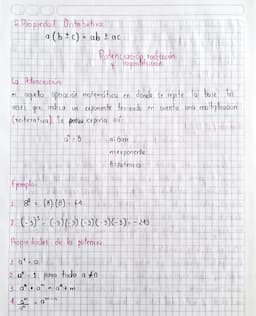 2. Propiedad Distributiva:
a(b±c) = ab ± ac
Potenciación, radicación
y logaritmación
La Potenciación
es aquella operación matemática en donde se repite la base las
veces que indica un exponente teniendo en cuenta una multiplicación
(reiterativa). Se expresa así:
aⁿ = B
a: base
n: exponente
B: potencia
Ejemplo:
1. 8² = (8)(8) = 64
2. (-3)⁵ = (-3)(-3)(-3)(-3)(-3) = -243
Propiedades de la potencia
1. a¹ = a
2. a⁰ = 1 para todo a ≠ 0